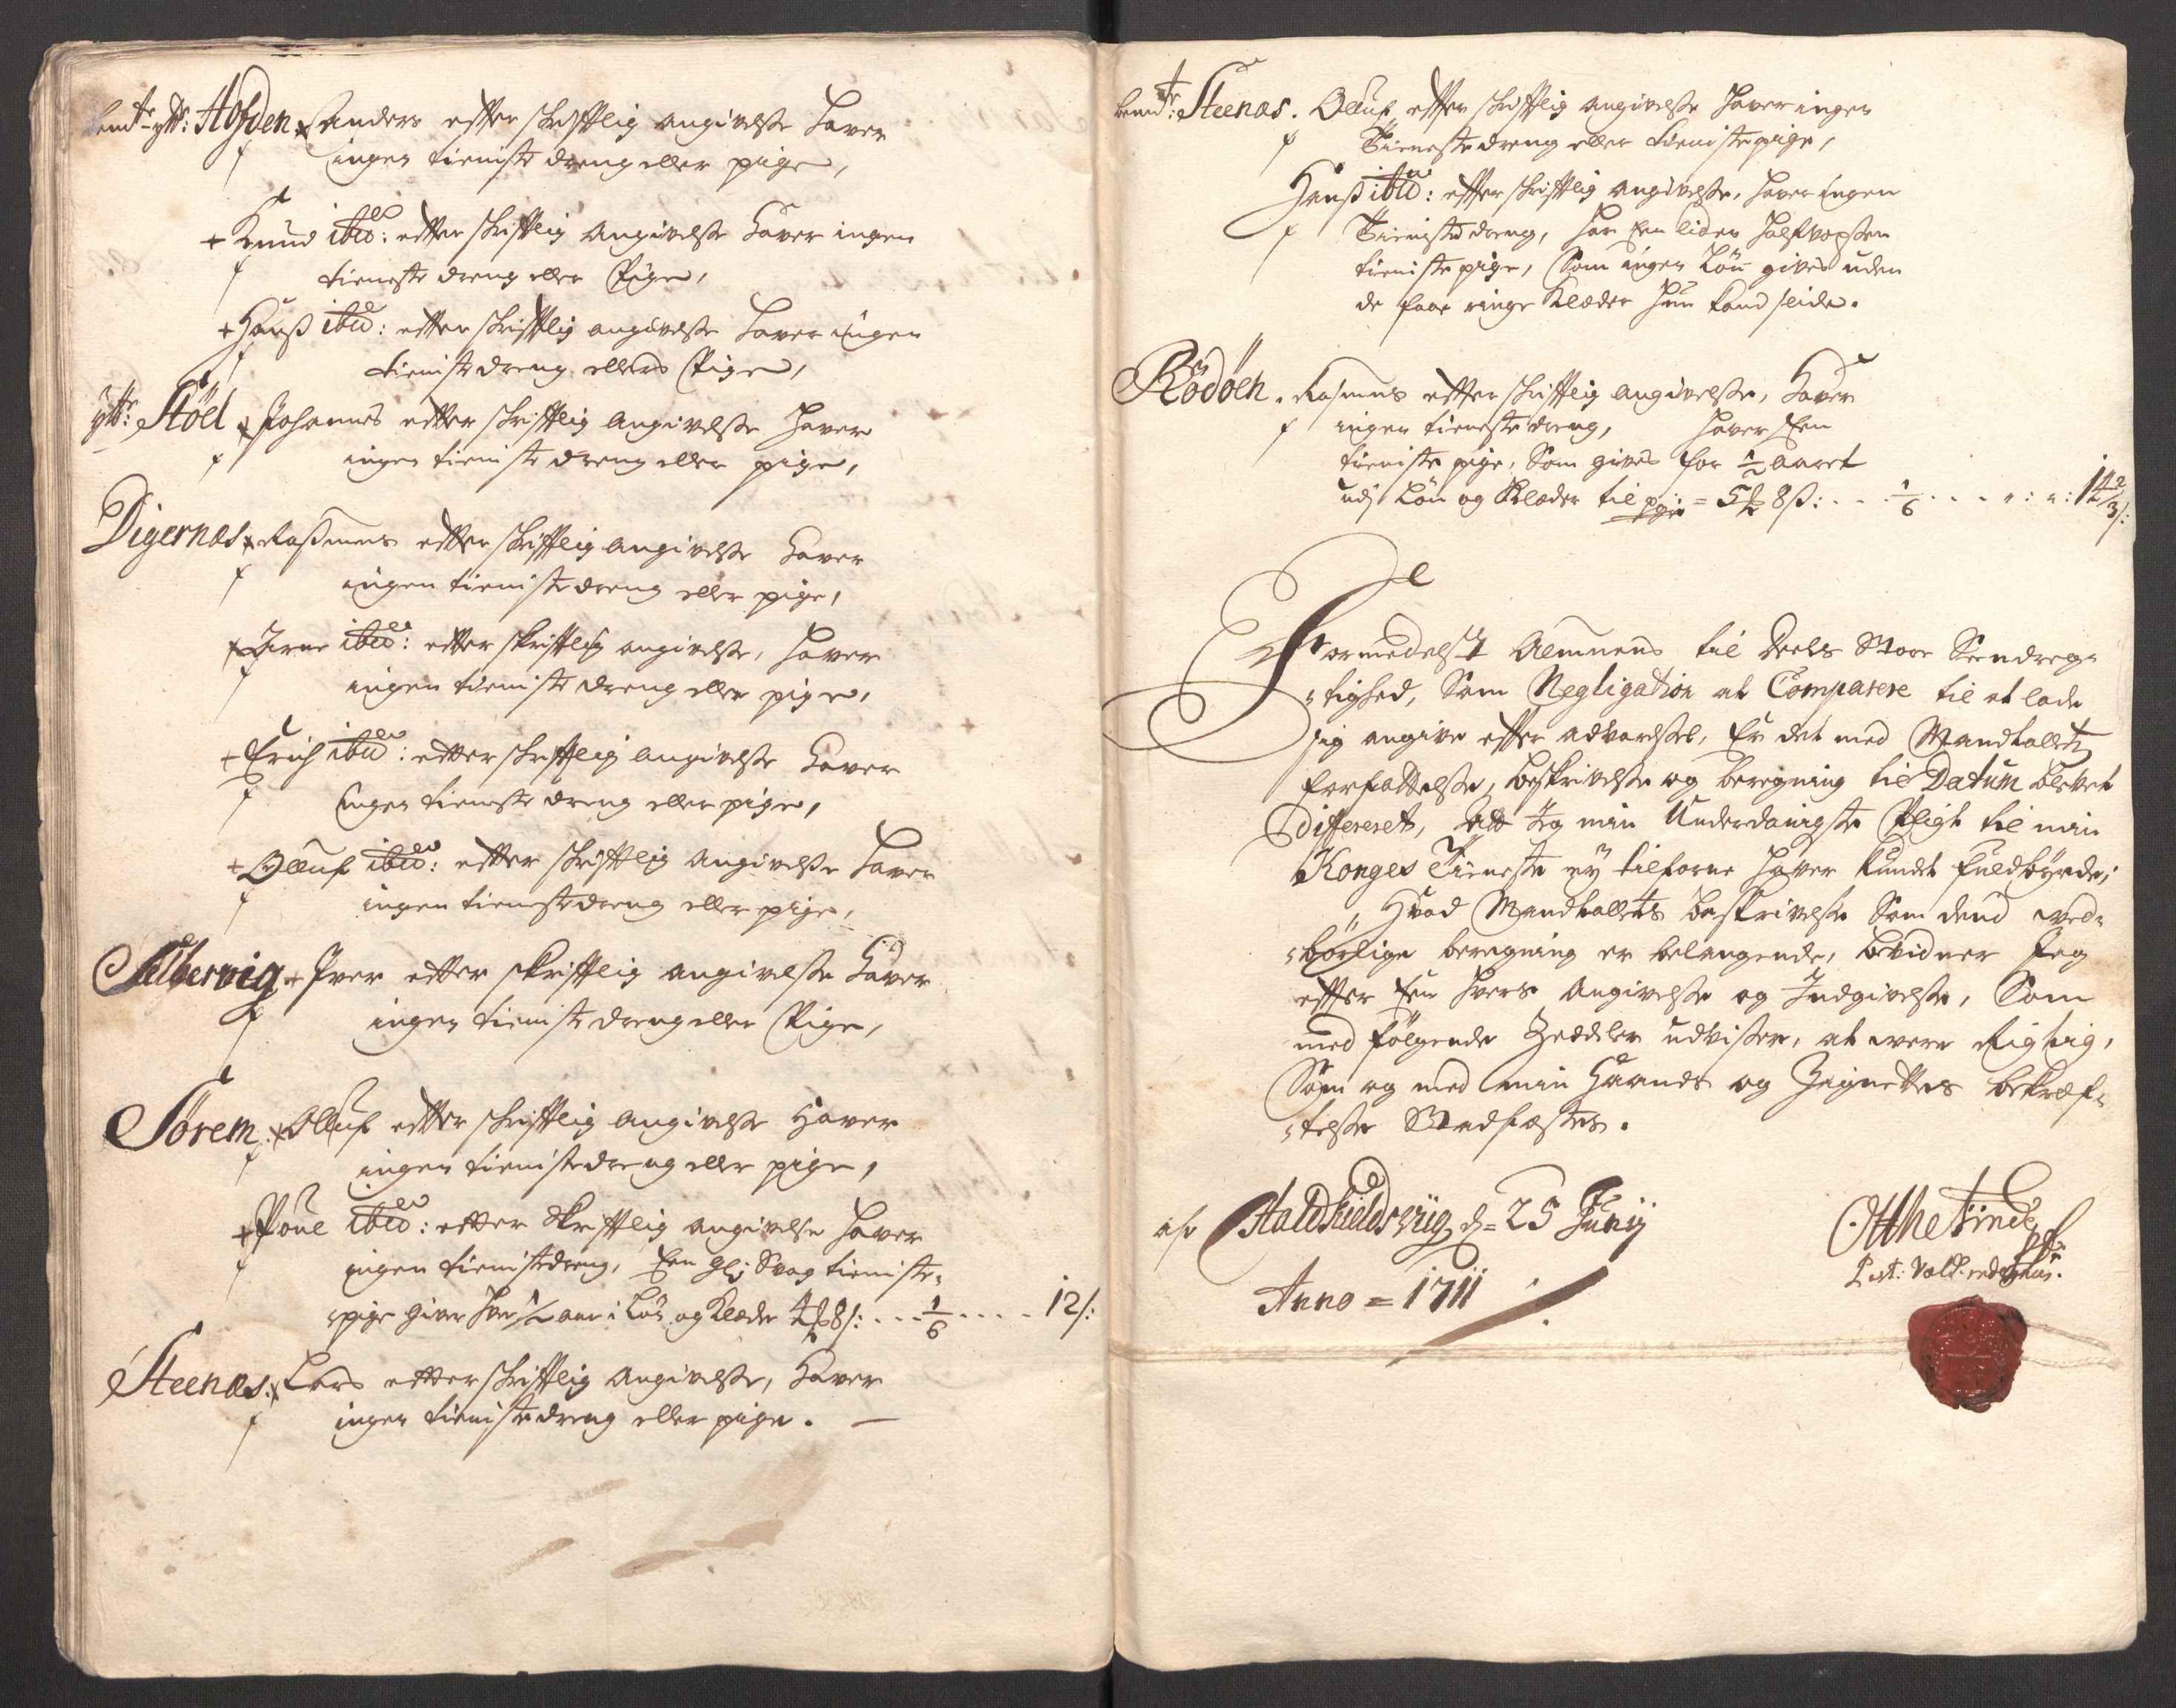 bemte ytt: Hofden Anders effter skrifftlig angivelsse haver
ingen tieniste dreng eller pige,
+ Knud ibid: effter skrifftlig Angivelsse haver ingen
tieneste dreng eller Pige,
+ Hanß ibid: effter skrifftlig angivelsse haver ingen
tieniste dreng ellers Pige,
ytt: Stöel Johannes effter skrifftlig Angivelsse haver
ingen tieniste dreng eller pige,
Digernæs Rassmus effter skrifftlig angivelsse haver
ingen tieniste dreng eller pige,
Arne ibid: effter skrifftlig angivelsse, haver
ingen tieniste dreng eller pige,
+ Erich ibid: effter skrifftlig angivelsse haver
Ingen tieneste dreng eller pige,
+ Olluf ibid: effter skrifftlig angivelsse haver
ingen tienestedreng eller pige,
Selbervig + Iver effter skrifftlig angivelsse haver
ingen tieniste dreng eller Pige,
Sørem. Olluf effter skrifftlig angivelsse haver
ingen tienistedreng eller pige,
+ Poul ibid: effter skrifftlig angivelse haver
ingen tienistedreng, Een gl: Svag tieniste-
pige giver hver 1/2 aar i Løn og Klæder 4 8s: - - - 1/6 - - - - 12s:
Steenæs. Lars effter skrifftlig Angivelsse, haver
ingen tienistedreng eller pige. —
bemte: Steenæs. Olluf effter skrifftlig angivelsse haver ingen
Tienestedreng eller tienistepige,
Hanß ibid: effter skrifftlig angivelsse, haver Ingen
Tienistedreng, har Een liden halfvoxsen
tieniste pige, Som ingen Løn gives uden
de faae ringe Klæder hun kand slide.
Rödöen. Rasmus effter skrifftlig angivelsse, haver
ingen tienestedreng, haver Een
tieniste pige, Som gives for 1/2 aaret
udj Løn og Klæder til pgr = 5 8s: - - - 1/6 - - - " : " : 14 2/3 s:
Formedelst Almuens til Deels Store Seendreg-
tighed, Som Negligation at Comparere til at lade
sig angive effter advarssel, Er det med Mandtallets
forfattelsse, beskrivelsse og beregning til Datum blevet
differeret, Att Jeg min Underdanigste Pligt til min
Konges Tieneste ey tilforne haver kundet fuldbyrde;
Hvad Mandtallets beskrivelsse Som dend ved-
børlige beregning er belangende, bevidner Jeg
effter Een hvers Angivelsse og Indgivelsse, Som
med følgende Zeddeler udvisser, at være Rigtig,
Som og med min Haands og Zignettes bekref-
telsse Stadfæstes.
Staldhieldsvig d= 25 Junij
Anno = 1711
Otthe